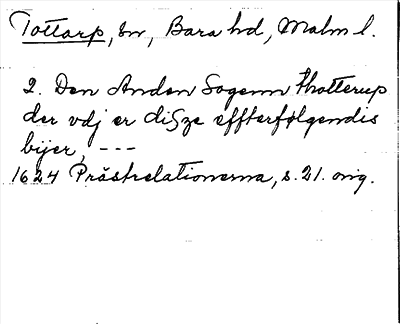 Tottarp, sn, Bara hd, Malm l.
2. Den Anden Sogenn Thotterup
der vdj er diſze effterfølgendis
bijer, ---
1624 Prästrelationerna, s. 21. orig.